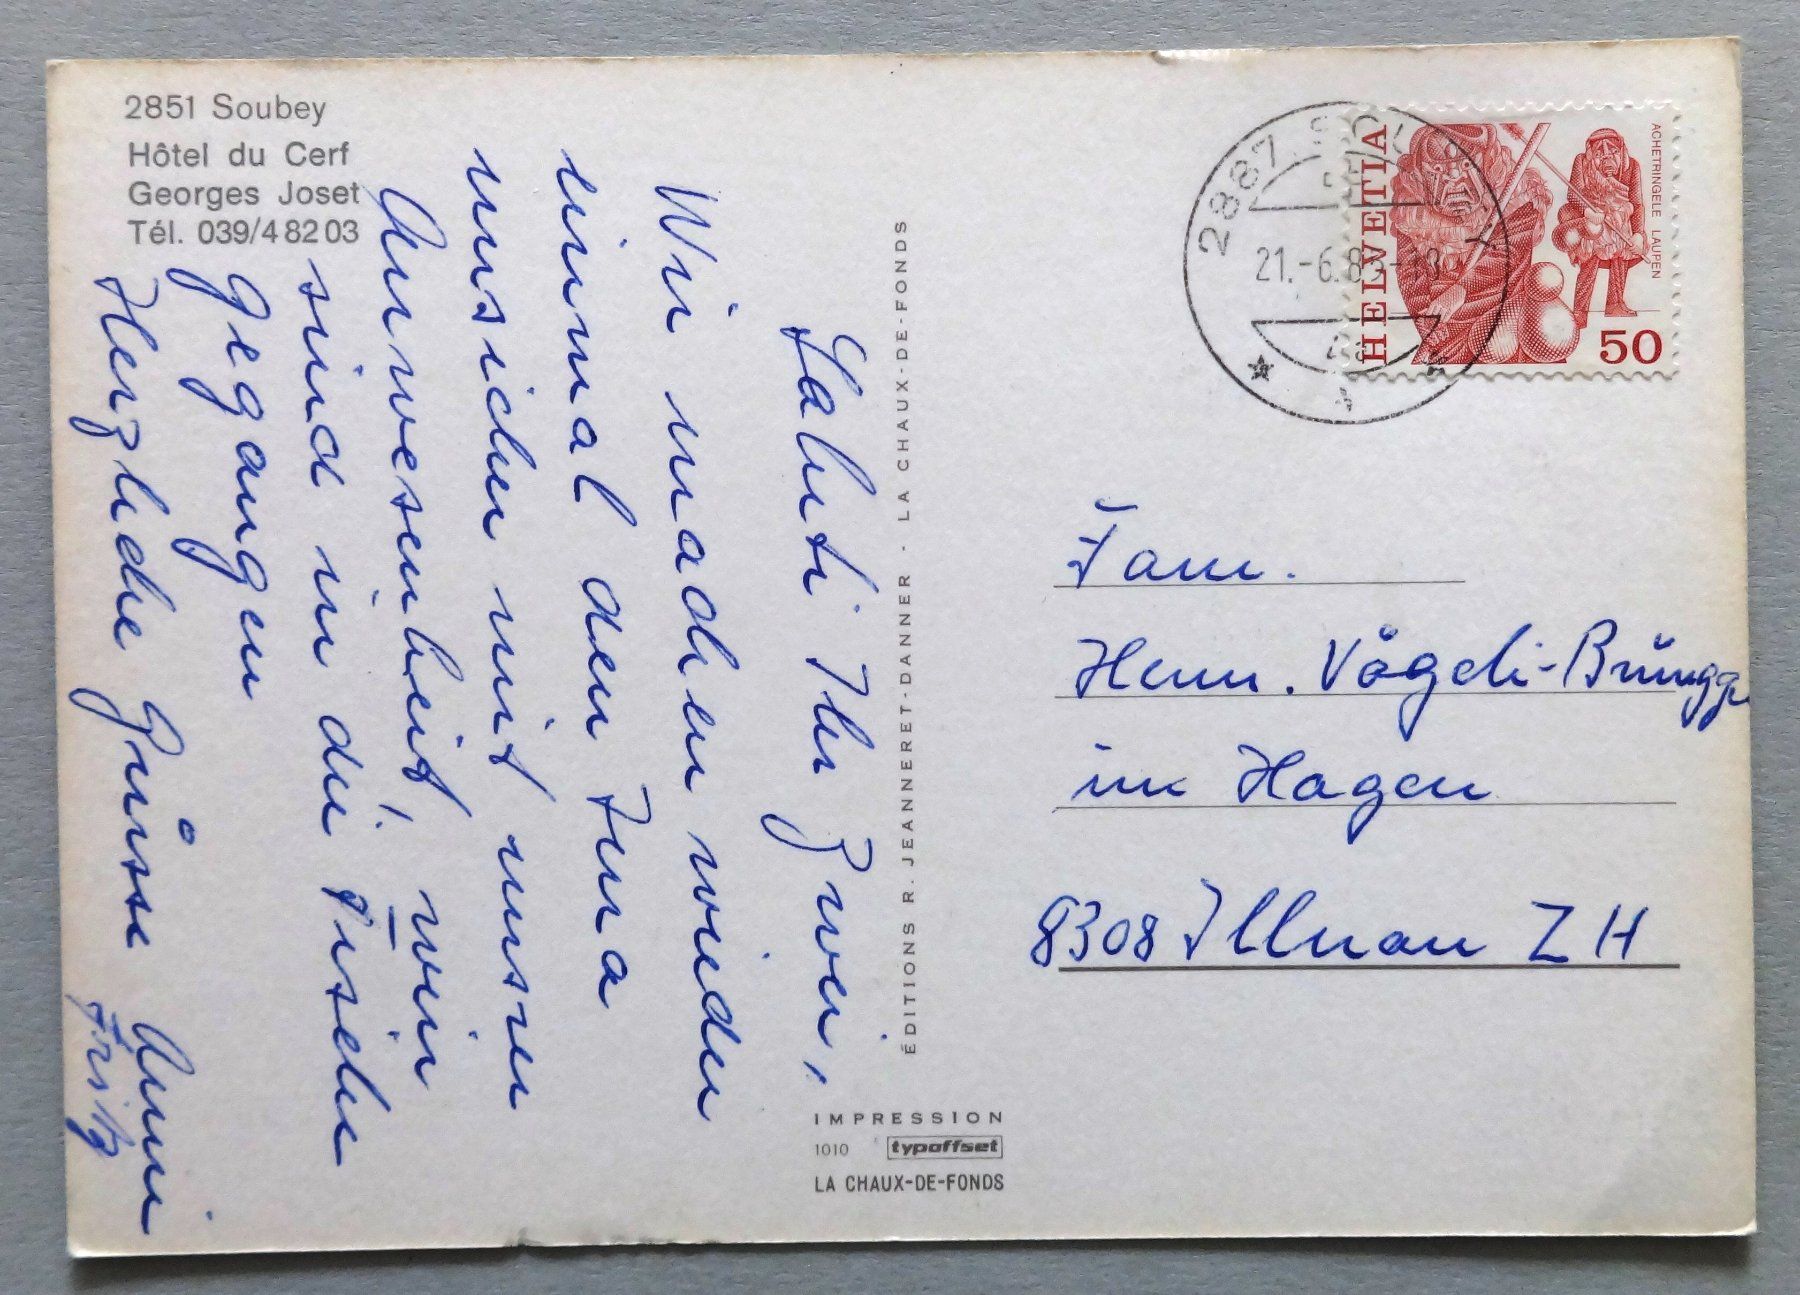 2851 Soubey
Hôtel du Cerf
Georges Joset
Tél. 039/4 82 03
Saluti Ihr Zwei,
Wir machen wieder
einmal den Jura
unsicher mit unsrer
Anwesenheit, wir
sind in die Fische
gegangen
Herzliche Grüsse Anni
Fritz
ÉDITIONS R. JEANNERET-DANNER - LA CHAUX-DE-FONDS
IMPRESSION
1010 typoffset
LA CHAUX-DE-FONDS
2887 SOUBEY
21.-6.8
HELVETIA
ACHETRINGELE LAUPEN
50
Fam.
Herm. Vögeli-Brüngger
im Hagen
8308 Illnau ZH